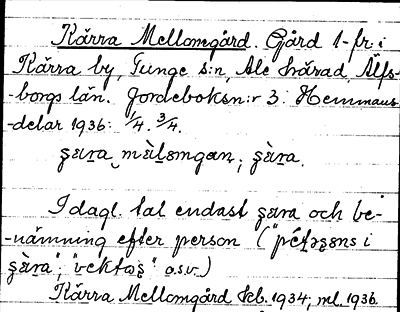 Kärra Mellomgård. Gård 1-fr. i
Kärra by, Tunge s:n, Ale härad, Älfs-
-borgs län. Jordeboksn:r 3. Hemmans-
-delar 1936: 1/4. 3/4.
şæra mèlǝmgan, şæ̀ra.
I dagl. tal endast şæra och be-
-nämning efter person ("pétǝşǝns i
şæ̀ra", "vektaş" o.s.v.)
Kärra Mellomgård kb. 1934, ml. 1936.